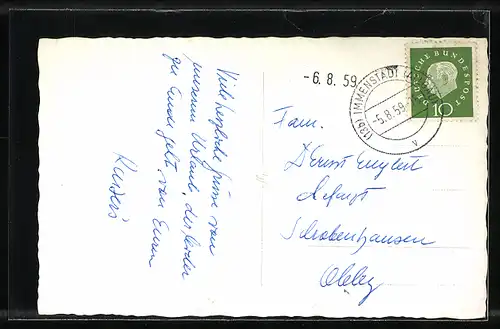 Viele herzliche Grüße von
unserem Urlaub, der leider
zu Ende geht, von Euren
Kaisers
-6. 8. 59
(13b) IMMENSTADT (ALLGÄU)
-5.8.59
v
DEUTSCHE BUNDESPOST
10
Fam.
Schrobenhausen
Obby